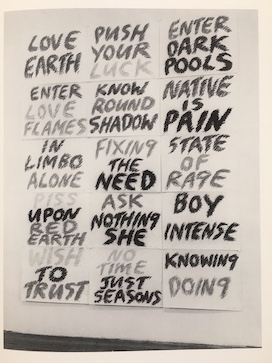 LOVE
EARTH
PUSH
YOUR
LUCK
ENTER
DARK
POOLS
ENTER
LOVE
FLAMES
KNOW
ROUND
SHADOW
NATIVE
IS
PAIN
IN
LIMBO
ALONE
FIXING
THE
NEED
STATE
OF
RAGE
PISS
UPON
RED
EARTH
ASK
NOTHING
SHE
BOY
INTENSE
WISH
TO
TRUST
NO
TIME
JUST
SEASONS
KNOWING
DOING